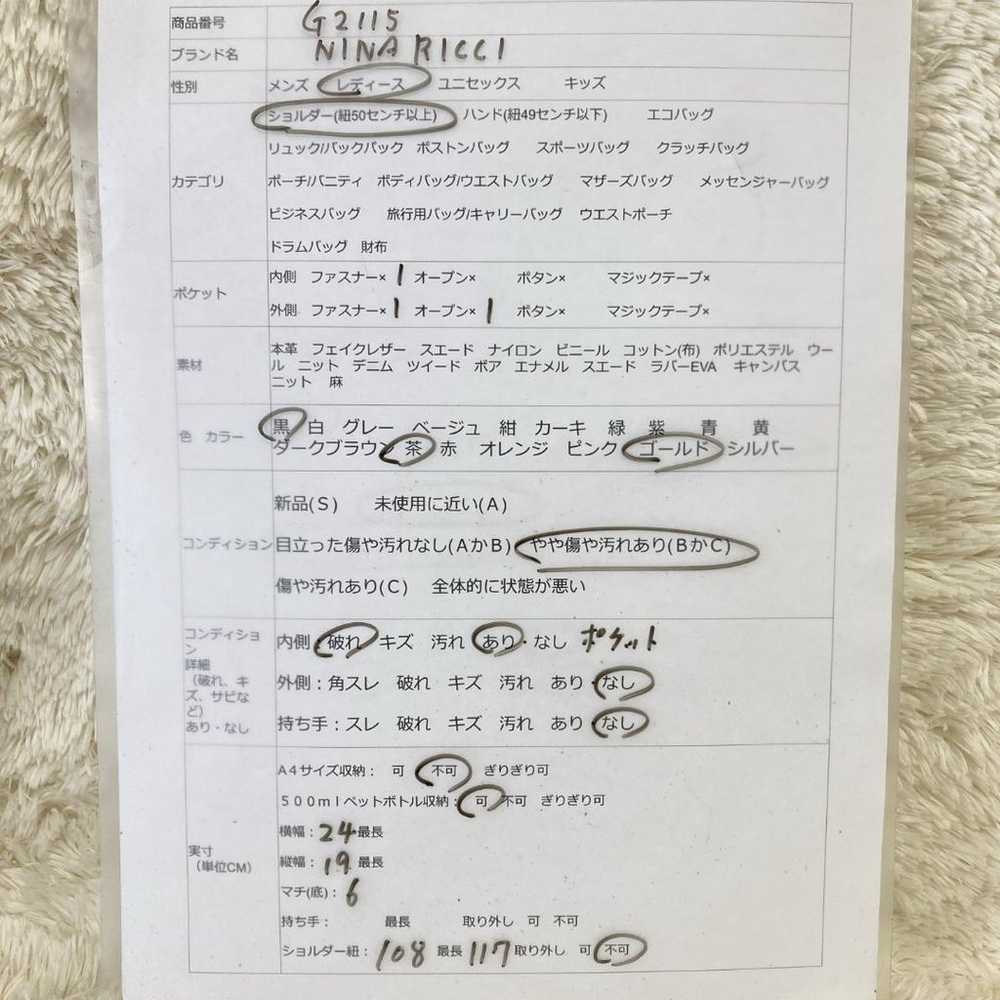 商品番号 G2115
ブランド名 NINA RICCI
性別 メンズ レディース ユニセックス キッズ
ショルダー(紐50センチ以上) ハンド(紐49センチ以下) エコバッグ
リュック/バックパック ボストンバッグ スポーツバッグ クラッチバッグ
カテゴリ ポーチ/バニティ ボディバッグ/ウエストバッグ マザーズバッグ メッセンジャーバッグ
ビジネスバッグ 旅行用バッグ/キャリーバッグ ウエストポーチ
ドラムバッグ 財布
ポケット 内側 ファスナー× 1 オープン× ボタン× マジックテープ×
外側 ファスナー× 1 オープン× 1 ボタン× マジックテープ×
素材 本革 フェイクレザー スエード ナイロン ビニール コットン(布) ポリエステル ウー
ル ニット デニム ツイード ボア エナメル スエード ラバーEVA キャンバス
ニット 麻
色 カラー 黒 白 グレー ベージュ 紺 カーキ 緑 紫 青 黄
ダークブラウン 茶 赤 オレンジ ピンク ゴールド シルバー
新品(S) 未使用に近い(A)
コンディション 目立った傷や汚れなし(AかB) やや傷や汚れあり(BかC)
傷や汚れあり(C) 全体的に状態が悪い
コンディショ
ン
詳細
(破れ、キ
ズ、サビな
ど)
あり・なし
内側:破れ キズ 汚れ あり・なし ポケット
外側:角スレ 破れ キズ 汚れ あり・なし
持ち手:スレ 破れ キズ 汚れ あり・なし
実寸
(単位CM)
A4サイズ収納: 可 不可 ぎりぎり可
500mlペットボトル収納: 可 不可 ぎりぎり可
横幅:24最長
縦幅:19最長
マチ(底):6
持ち手: 最長 取り外し 可 不可
ショルダー紐:108 最長117取り外し 可 不可